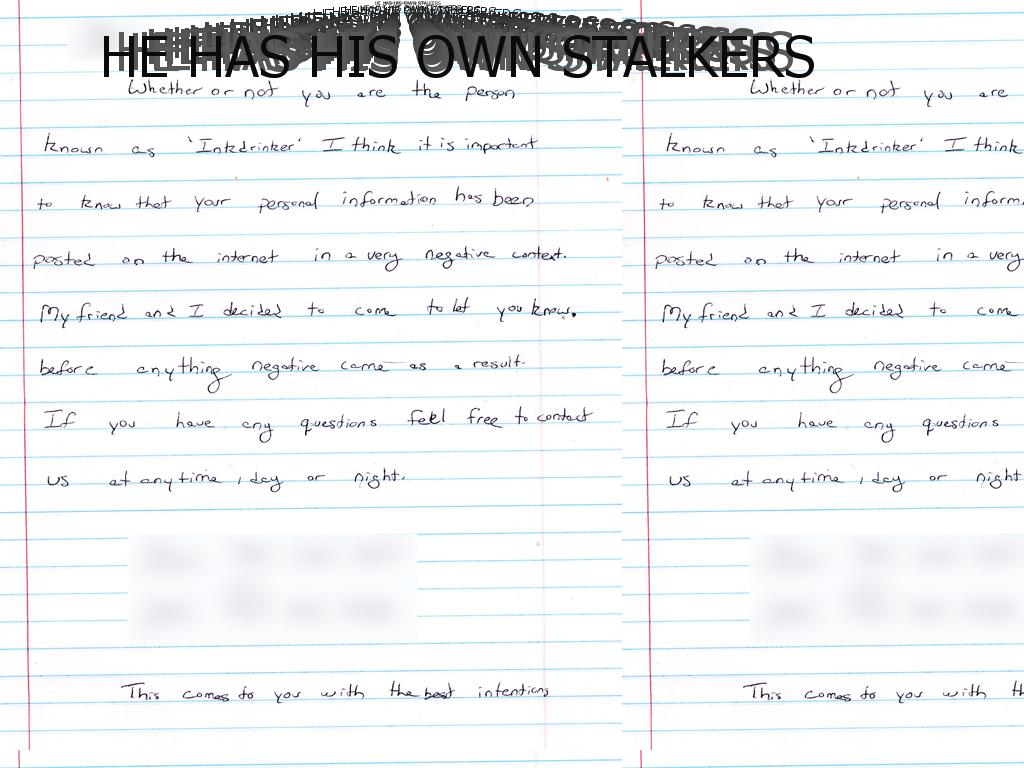 HE HAS HIS OWN STALKERS
Whether or not you are the person
known as 'Inkdrinker' I think it is important
to know that your personal information has been
posted on the internet in a very negative context.
My friend and I decided to come to let you know.
before anything negative came as a result.
If you have any questions feel free to contact
us at anytime, day or night.
This comes to you with the best intentions
Whether or not you are
known as 'Inkdrinker' I think
to know that your personal inform
posted on the internet in a very
My friend and I decided to come
before anything negative came
If you have any questions
us at anytime, day or night
This comes to you with th